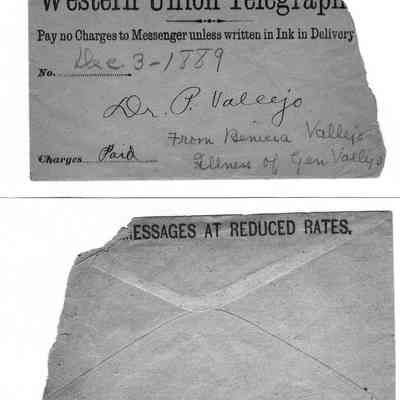 Western Union Telegraph
Pay no Charges to Messenger unless written in Ink in Delivery
Dec 3-1889
No.
Dr. P. Vallejo
From Benicia Vallejo
Illness of Gen Vallejo
Charges Paid
ESSAGES AT REDUCED RATES.